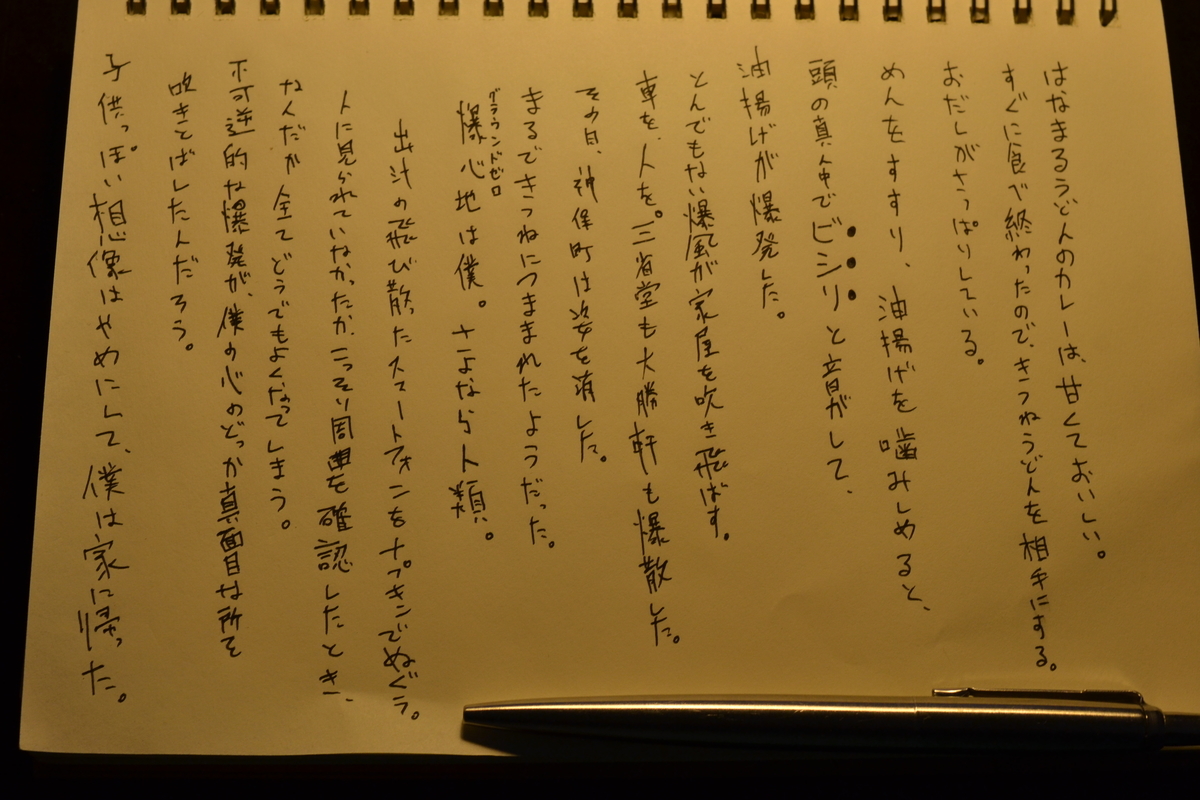 はなまるうどんのカレーは、甘くておいしい。
すぐに食べ終わったので、きつねうどんを相手にする。
おだしがさっぱりしている。
めんをすすり、油揚げを噛みしめると、
頭の真ん中でビシリと音がして、
油揚げが爆発した。
とんでもない爆風が家屋を吹き飛ばす。
車を、人を。三省堂も大勝軒も爆散した。
その日、神保町は姿を消した。
まるできつねにつままれたようだった。
グラウンドゼロ
爆心地は僕。さよなら人類。
出汁の飛び散ったスマートフォンをナプキンでぬぐう。
人に見られていなかったか、こっそり周囲を確認したとき、
なんだか全てどうでもよくなってしまう。
不可逆的な爆発が、僕の心のどっか真面目な所を
吹きとばしたんだろう。
子供っぽい想像はやめにして、僕は家に帰った。